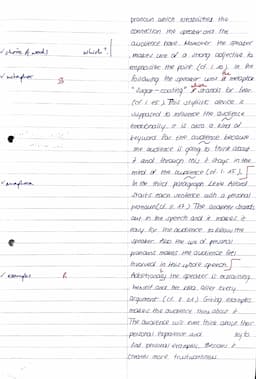 pronoun which established the
connection the speaker and the
audience have. Moreover the speaker
✓ choice of words which ?.
makes use of a strong adjective to
emphasize the point (cf. l. 10). In the
✓ metaphor
following the speaker uses a metaphor
the
"sugar-coating"
stands for
(cf. l. 15). This stylistic device is
supposed to influence the audience
emotionally. It is also a kind of
keyword for the audience because
the audience is going to think about
it and through this it stays in the
mind of the audience (cf. l. 15).
✓ anaphora
In the third paragraph
starts each sentence with a personal
pronoun (cf. l. 17). The anaphora stands
out in the speech and it makes it
easy for the audience to follow the
speaker. Also the use of personal
pronouns makes the audience feel
involved in the whole speech.
✓ examples
Additionally the speaker is explaining
himself and the idea after every
argument (cf. l. 21). Giving examples
makes the audience think about it.
The audience will even think about their
personal experience and
And personal examples
more trustworthiness.